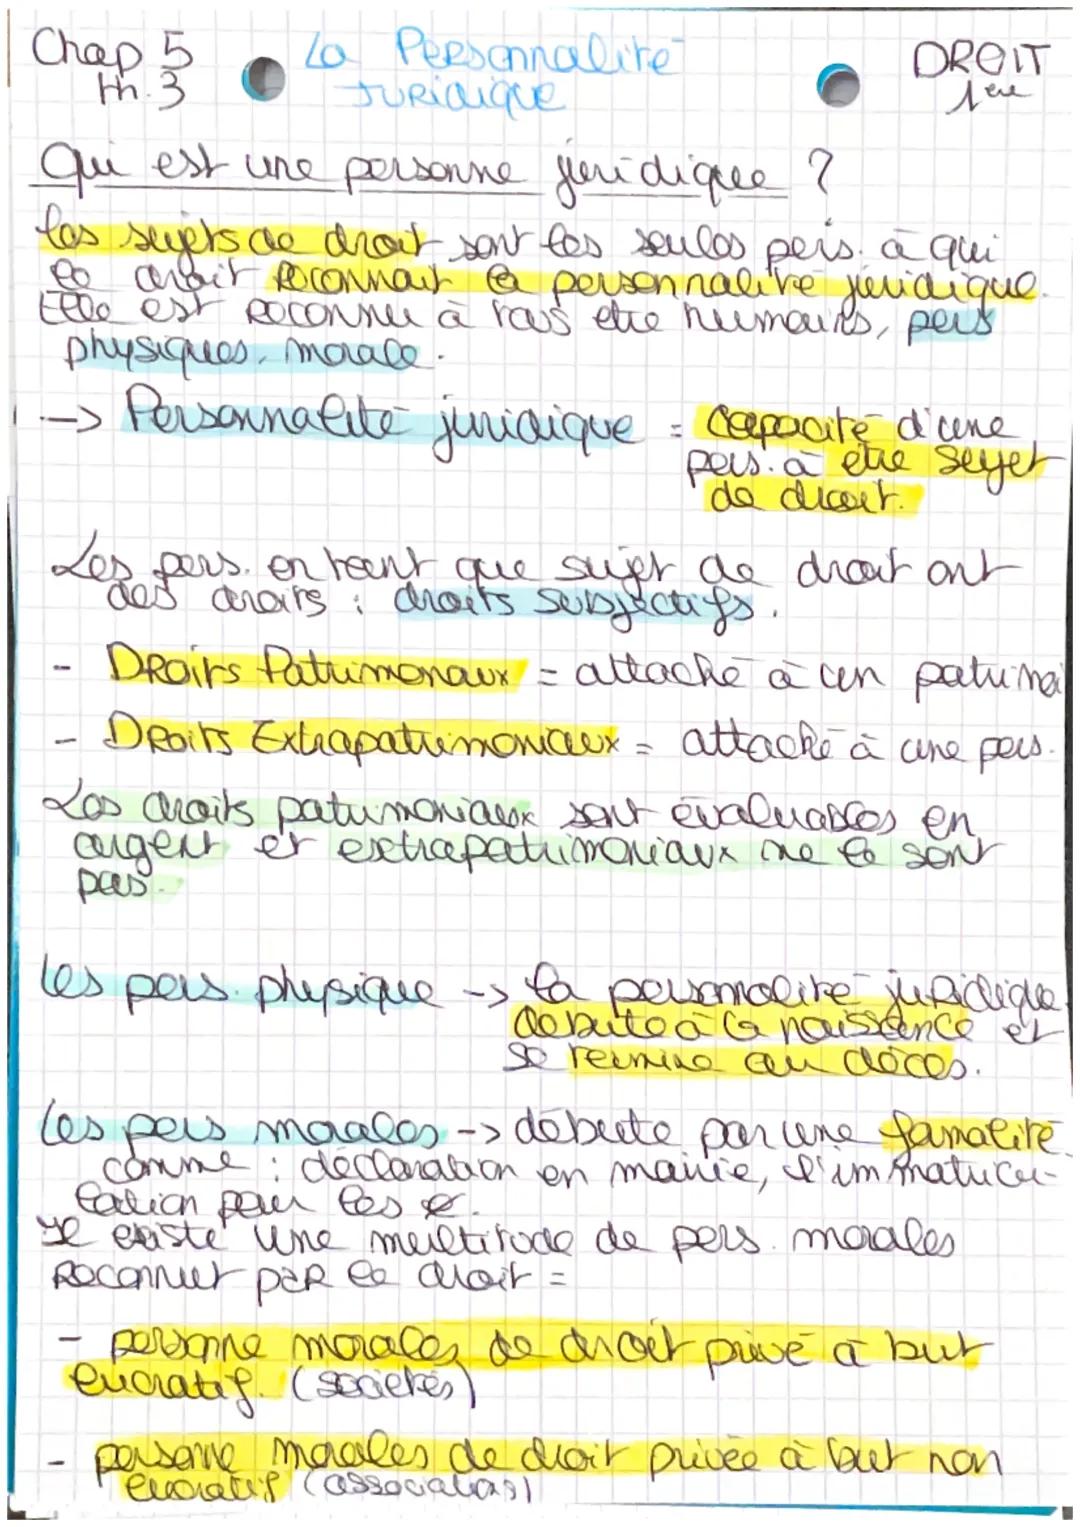 Chap 5 La Personnalité DROIT
th. 3 JURidique 1ere
Qui est une personne juridique ?
Les sujets de droit sont les seules pers. à qui
le droit Reconnait la personnalité juridique.
Elle est Reconnu à tous etre humains, pers
physiques, morale.
--> Personnalité juridique = Capacité d'une
pers. à etre sujet
de droit.
Les pers. en tant que sujet de droit ont
des droits : droits subjectifs.
- DRoits Patrimonaux = attaché à un patrimoi
- DRoits Extrapatrimoniaux = attaché à une pers.
Les droits patrimoniaux sont évaluables en
argent et extrapatrimoniaux ne le sont
pas.
Les pers. physique -> la personnalité juRidique
debute à la naissance et
se termine au décès.
Les pers morales -> débute par une formalité
comme : déclaration en mairie, l'immatricu-
lation pour les e.
Il existe une multitude de pers. morales
Reconnut paR le droit =
- personne morales de droit privé à but
lucratif. (sociétés)
- personne morales de droit privée à but non
lucratif (associations)